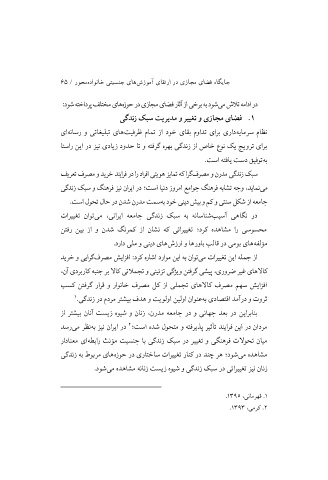 جایگاه فضای مجازی در ارتقای آموزش‌های جنسیتی خانواده‌محور / ۶۵
در ادامه تلاش می‌شود به برخی از آثار فضای مجازی در حوزه‌های مختلف پرداخته شود:
۱. فضای مجازی و تغییر و مدیریت سبک زندگی
نظام سرمایه‌داری برای تداوم بقای خود از تمام ظرفیت‌های تبلیغاتی و رسانه‌ای
برای ترویج یک نوع خاص از زندگی بهره گرفته و تا حدود زیادی نیز در این راستا
به‌توفیق دست یافته است.
سبک زندگی مدرن و مصرف‌گرا که تمایز هویتی افراد را در فرایند خرید و مصرف تعریف
می‌نماید، وجه تشابه فرهنگ جوامع امروز دنیا است؛ در ایران نیز فرهنگ و سبک زندگی
جامعه از شکل سنتی و کم و بیش دینی خود به‌سمت مدرن شدن در حال تحول است.
در نگاهی آسیب‌شناسانه به سبک زندگی جامعه ایرانی، می‌توان تغییرات
محسوسی را مشاهده کرد؛ تغییراتی که نشان از کمرنگ شدن و از بین رفتن
مؤلفه‌های بومی در قالب باورها و ارزش‌های دینی و ملی دارد.
از جمله این تغییرات می‌توان به این موارد اشاره کرد: افزایش مصرف‌گرایی و خرید
کالاهای غیر ضروری، پیشی گرفتن ویژگی تزئینی و تجملاتی کالا بر جنبه کاربردی آن،
افزایش سهم مصرف کالاهای تجملی از کل مصرف خانوار و قرار گرفتن کسب
ثروت و درآمد اقتصادی به‌عنوان اولین اولویت و هدف بیشتر مردم در زندگی.۱
بنابراین در بعد جهانی و در جامعه مدرن، زنان و شیوه زیست آنان بیشتر از
مردان در این فرایند تأثیر پذیرفته و متحول شده است؛۲ در ایران نیز به‌نظر می‌رسد
میان تحولات فرهنگی و تغییر در سبک زندگی با جنسیت مؤنث رابطه‌ای معنادار
مشاهده می‌شود؛ هر چند در کنار تغییرات ساختاری در حوزه‌های مربوط به زندگی
زنان نیز تغییراتی در سبک زندگی و شیوه زیست زنانه مشاهده می‌شود.
۱. قهرمانی، ۱۳۹۵.
۲. کرمی، ۱۳۹۳.